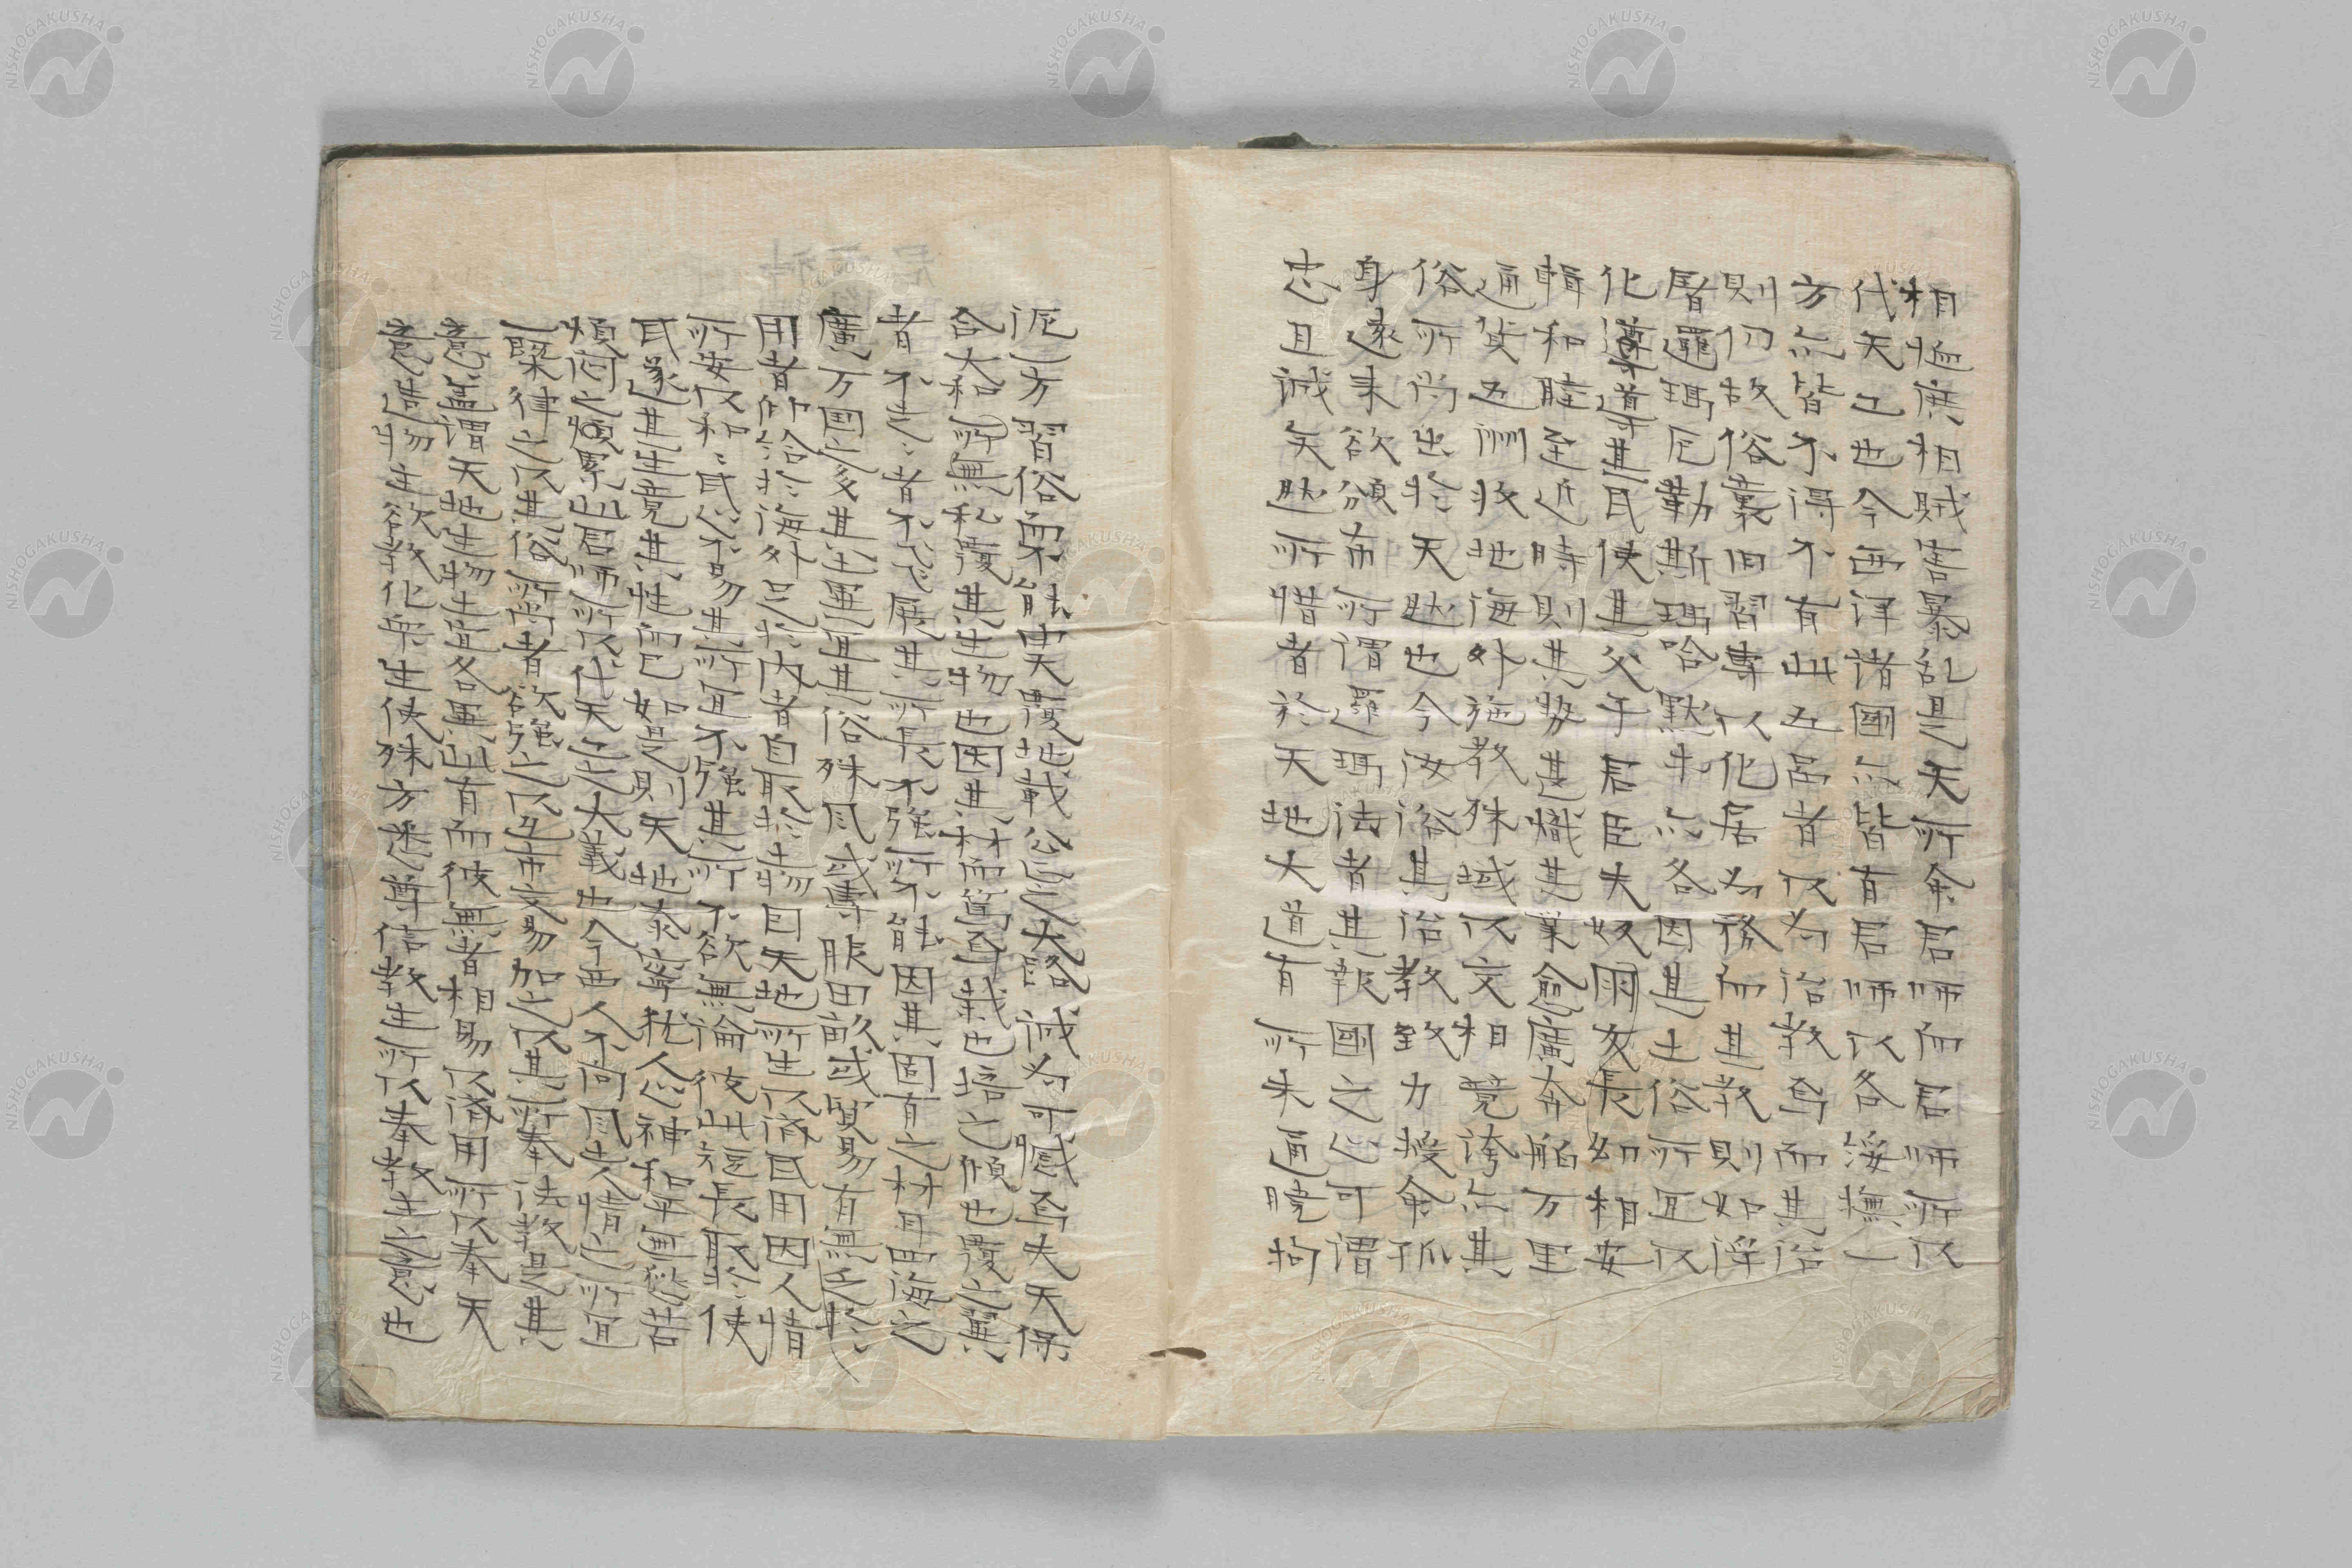 相恤庶相賊害暴乱是天所命君師而君師所以
代天工也今西洋諸國亦皆有君師以各綏撫一
方亦皆不得不有此五品者以為治教焉而其治
則仍故俗襲旧習專以化居為務而其教則如淂
厝邏瑪厄勒斯瑪哈默牟亦各因其土俗所宜以
化導其民使其父子君臣夫奴朋友長幼相安
輯和睦至近時則其势甚熾其業愈廣奔舶万里
通貨五洲牧地海外施教殊域以交相競誇亦其
俗所尚出於天然也今汝俗其治教致力授命孤
身遠来欲頒布所謂邏瑪法者其報國之心可謂
忠且誠矣然所惜者於天地大道有所未通暁拘
泥一方習俗而不能與天覆地載公正之大路誠為可憾焉夫天保
合大和所無私覆其生物也因其材而篤焉栽也培之傾也覆之翼
者不走走者不飞展其所長不強所不能因其固有之材耳四海之
廣万国之多其土異宜其俗殊風或專服田畝或貿易有無乏於
用者仰給於海外足於内者自取於土物因天地所生以済民用因人情
所安以和民心不易其所宜不強其所不欲無論彼此短長取於使
民遂其生竟其性而已如是則天地泰寧私人心神和平無愁苦
煩悶之煩累此君師所以代天工之大義也今西人不尚風土人情之所宜
一槩律之以其俗所尚者欲強之以互市交易加之以其所奉法教是其
意蓋謂天地生物土宜各異此有而彼無者相易以済用所以奉天
意造物主欲教化衆生使殊方悉尊信教主所以奉教主之意也